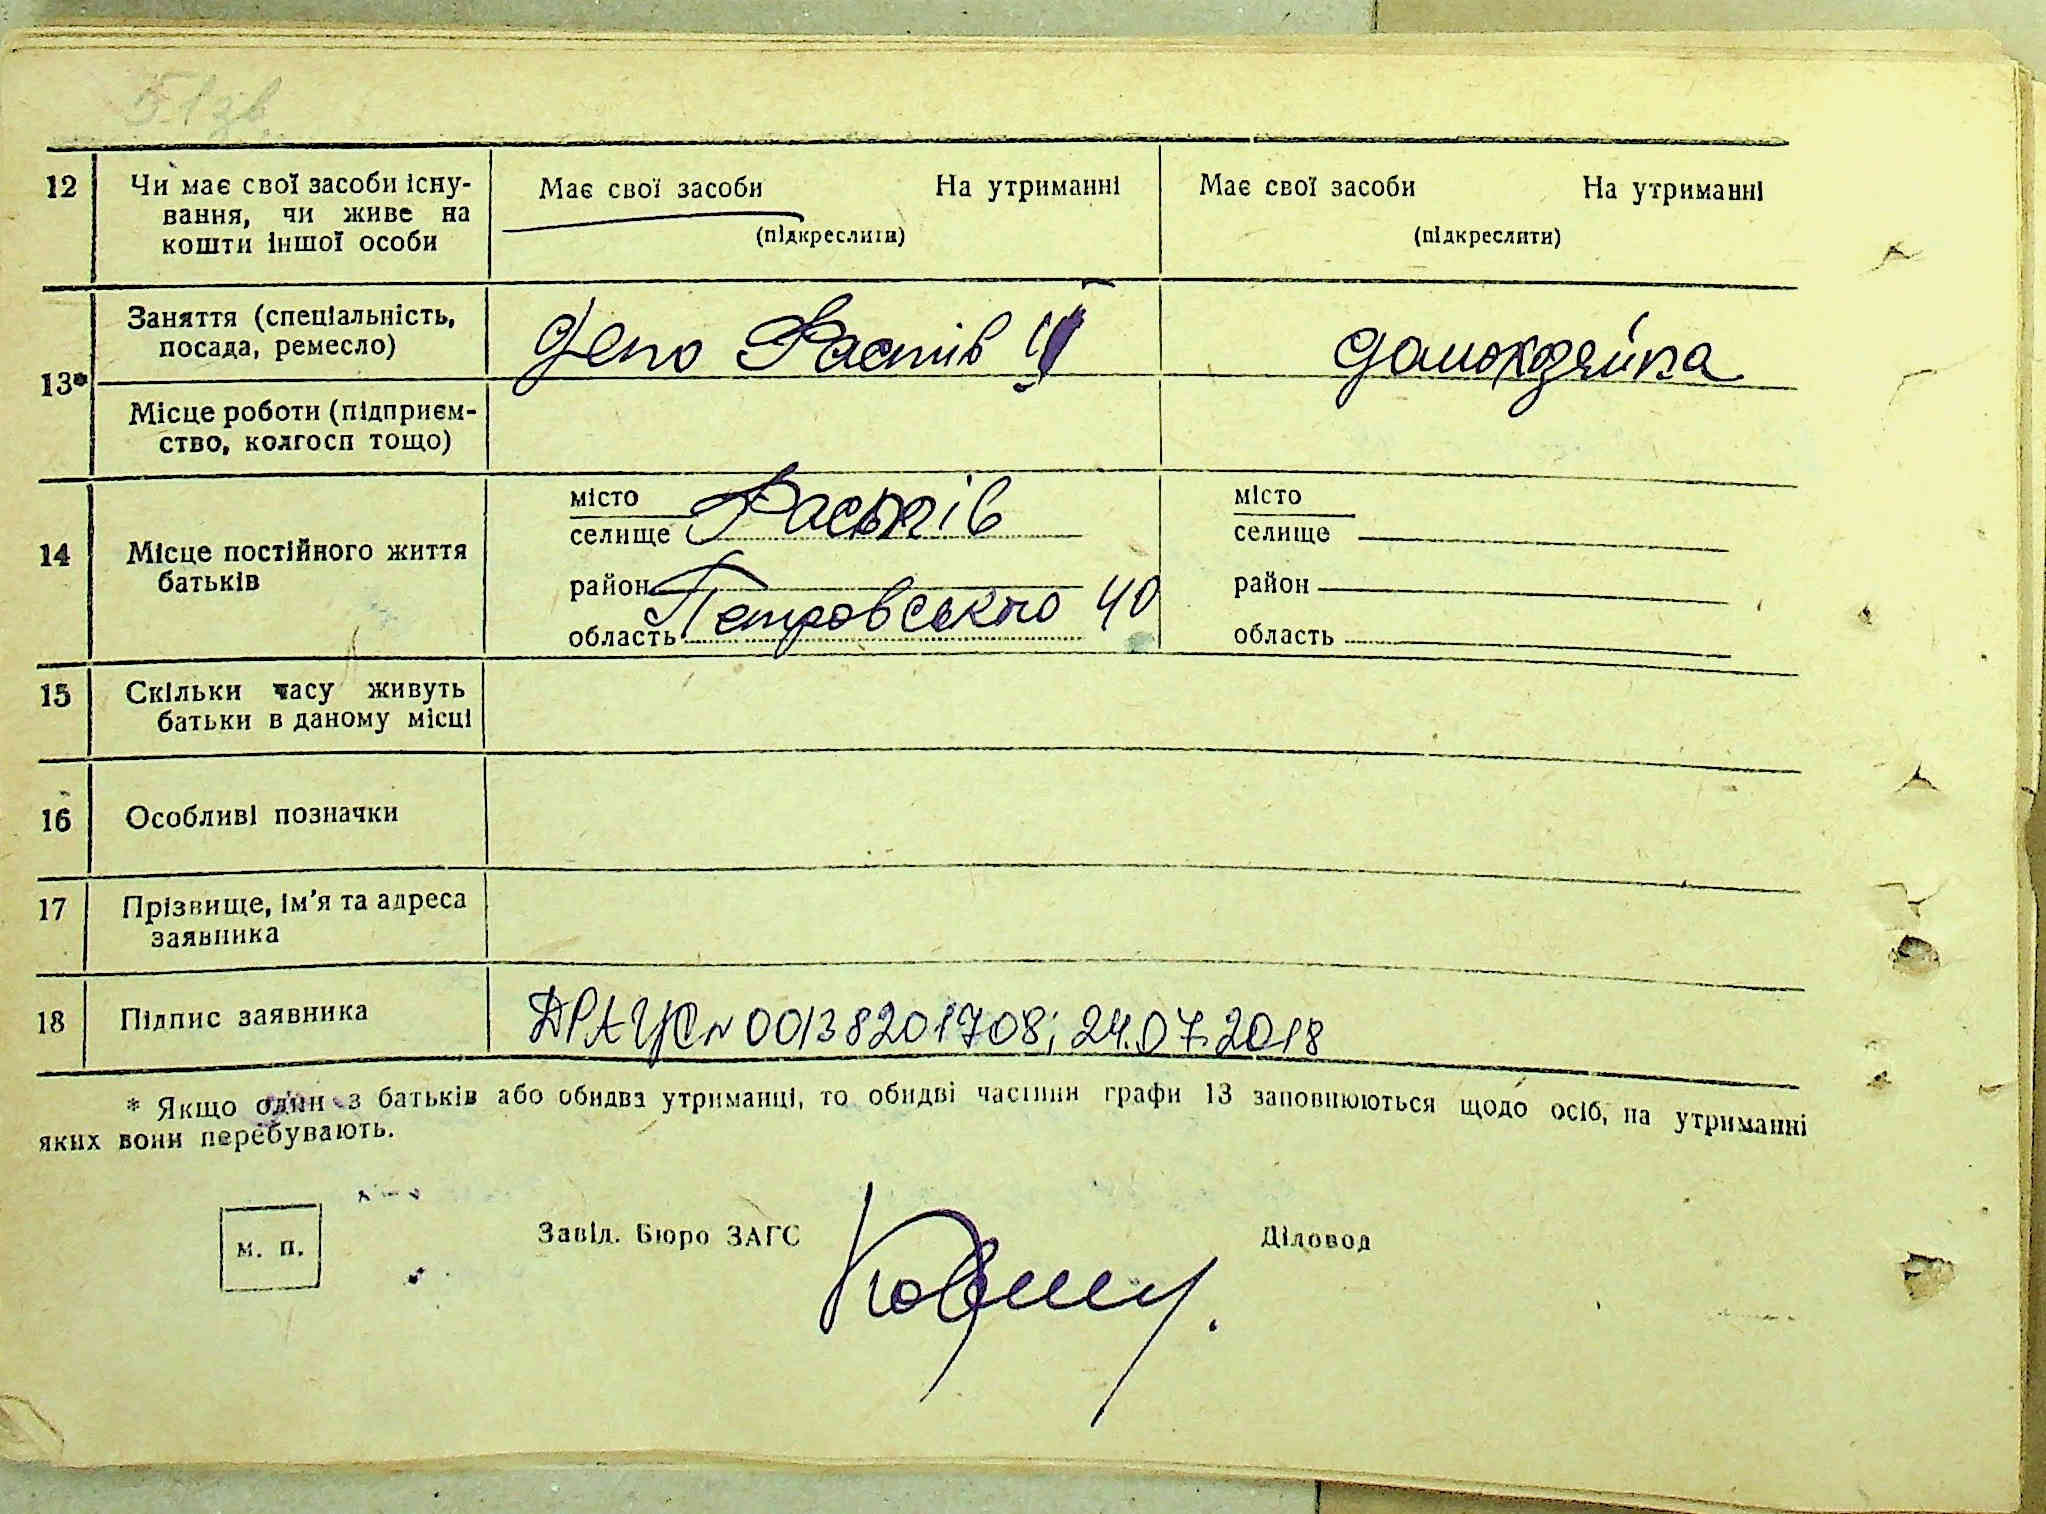 51 зв
12 Чи має свої засоби існу- Має свої засоби На утриманні Має свої засоби На утриманні
вання, чи живе на
кошти іншої особи (підкреслити) (підкреслити)
Заняття (спеціальність, Депо Хвастів домохозяйка
посада, ремесло)
13*
Місце роботи (підприєм-
ство, колгосп тощо)
місто місто
селище Хвастів селище
14 Місце постійного життя район район
батьків Петровського 40
область область
15 Скільки часу живуть
батьки в даному місці
16 Особливі позначки
17 Прізвище, ім'я та адреса
заявника
18 Підпис заявника ДРАЦС N 00138201708; 24.07.2018
* Якщо один з батьків або обидва утриманці, то обидві частини графи 13 заповнюються щодо осіб, на утриманні
яких вони перебувають.
м. п. Завід. Бюро ЗАГС Діловод